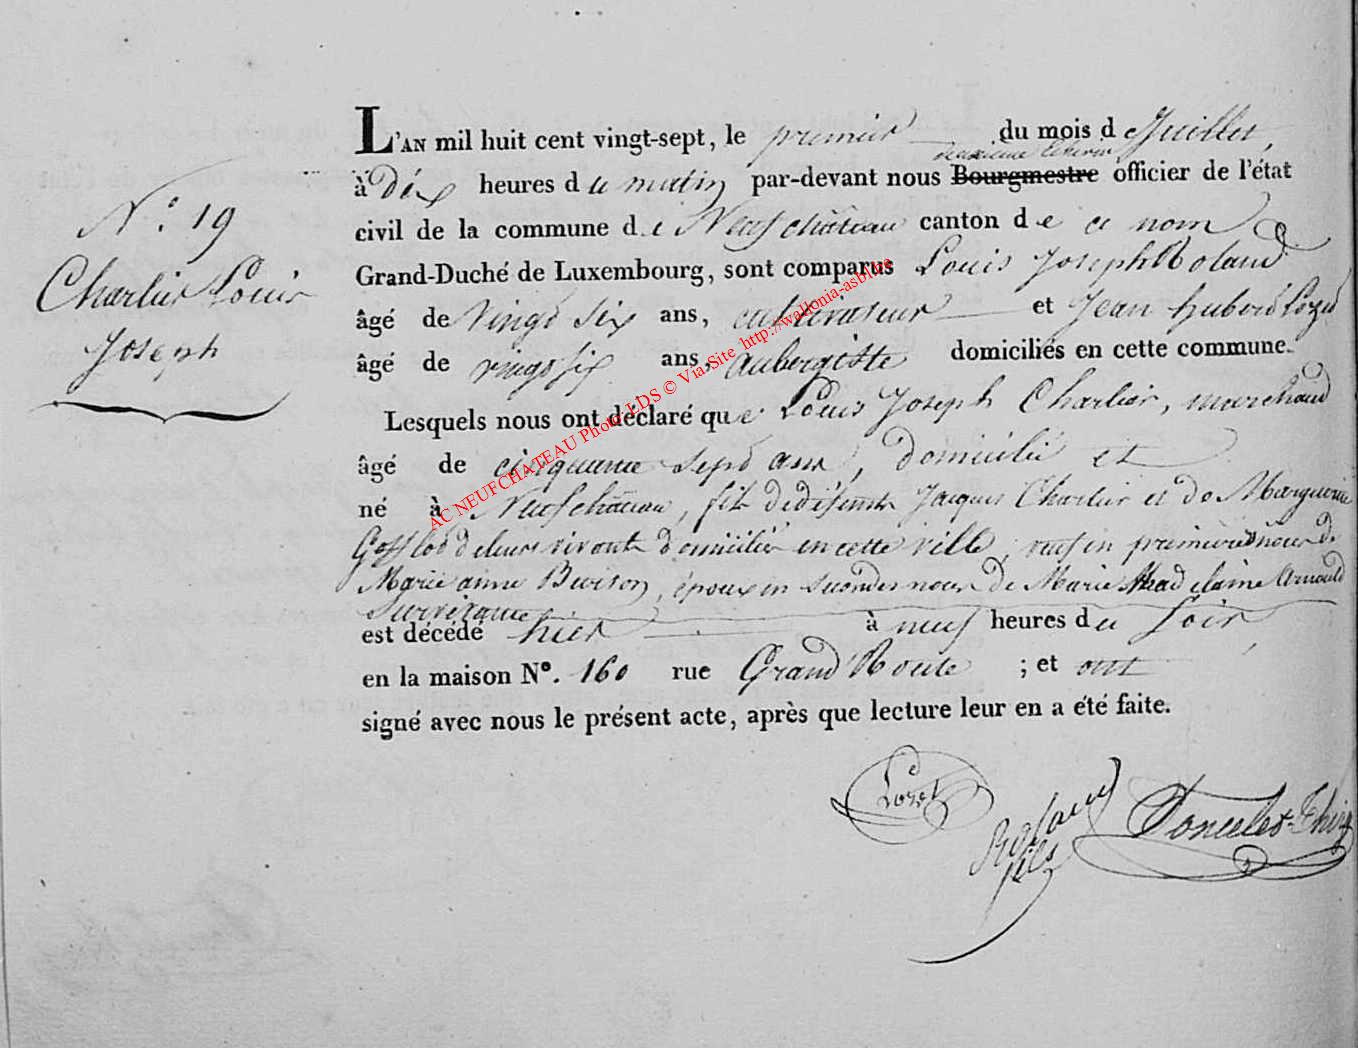 N.º 19
Charlier Louis
Joseph
L'AN mil huit cent vingt-sept, le premier du mois de Juillet,
deuxième Echevin
à dix heures du matin par-devant nous Bourgmestre officier de l'état
civil de la commune de Neufchâteau canton de ce nom
Grand-Duché de Luxembourg, sont comparus Louis Joseph Roland
âgé de vingt six ans, cultivateur et Jean hubert Lozet
âgé de vingt six ans, aubergiste domiciliés en cette commune.
Lesquels nous ont déclaré que Louis Joseph Charlier, marchand
âgé de cinquante sept ans, domicilié et
né à Neufchâteau, fils de défunts Jacques Charlier et de Marguerite
de leurs vivants domiciliés en cette ville, veuf en premières nôces de
Marie anne, époux en secondes noces de Marie Madelaine Arnould
Survivante
est décédé hier à neuf heures du Soir
en la maison Nº. 160 rue Grand'Route ; et ont
signé avec nous le présent acte, après que lecture leur en a été faite.
Lozet
Roland fils
AC NEUFCHATEAU Photo LDS © Via Site http://wallonia-asbl.be